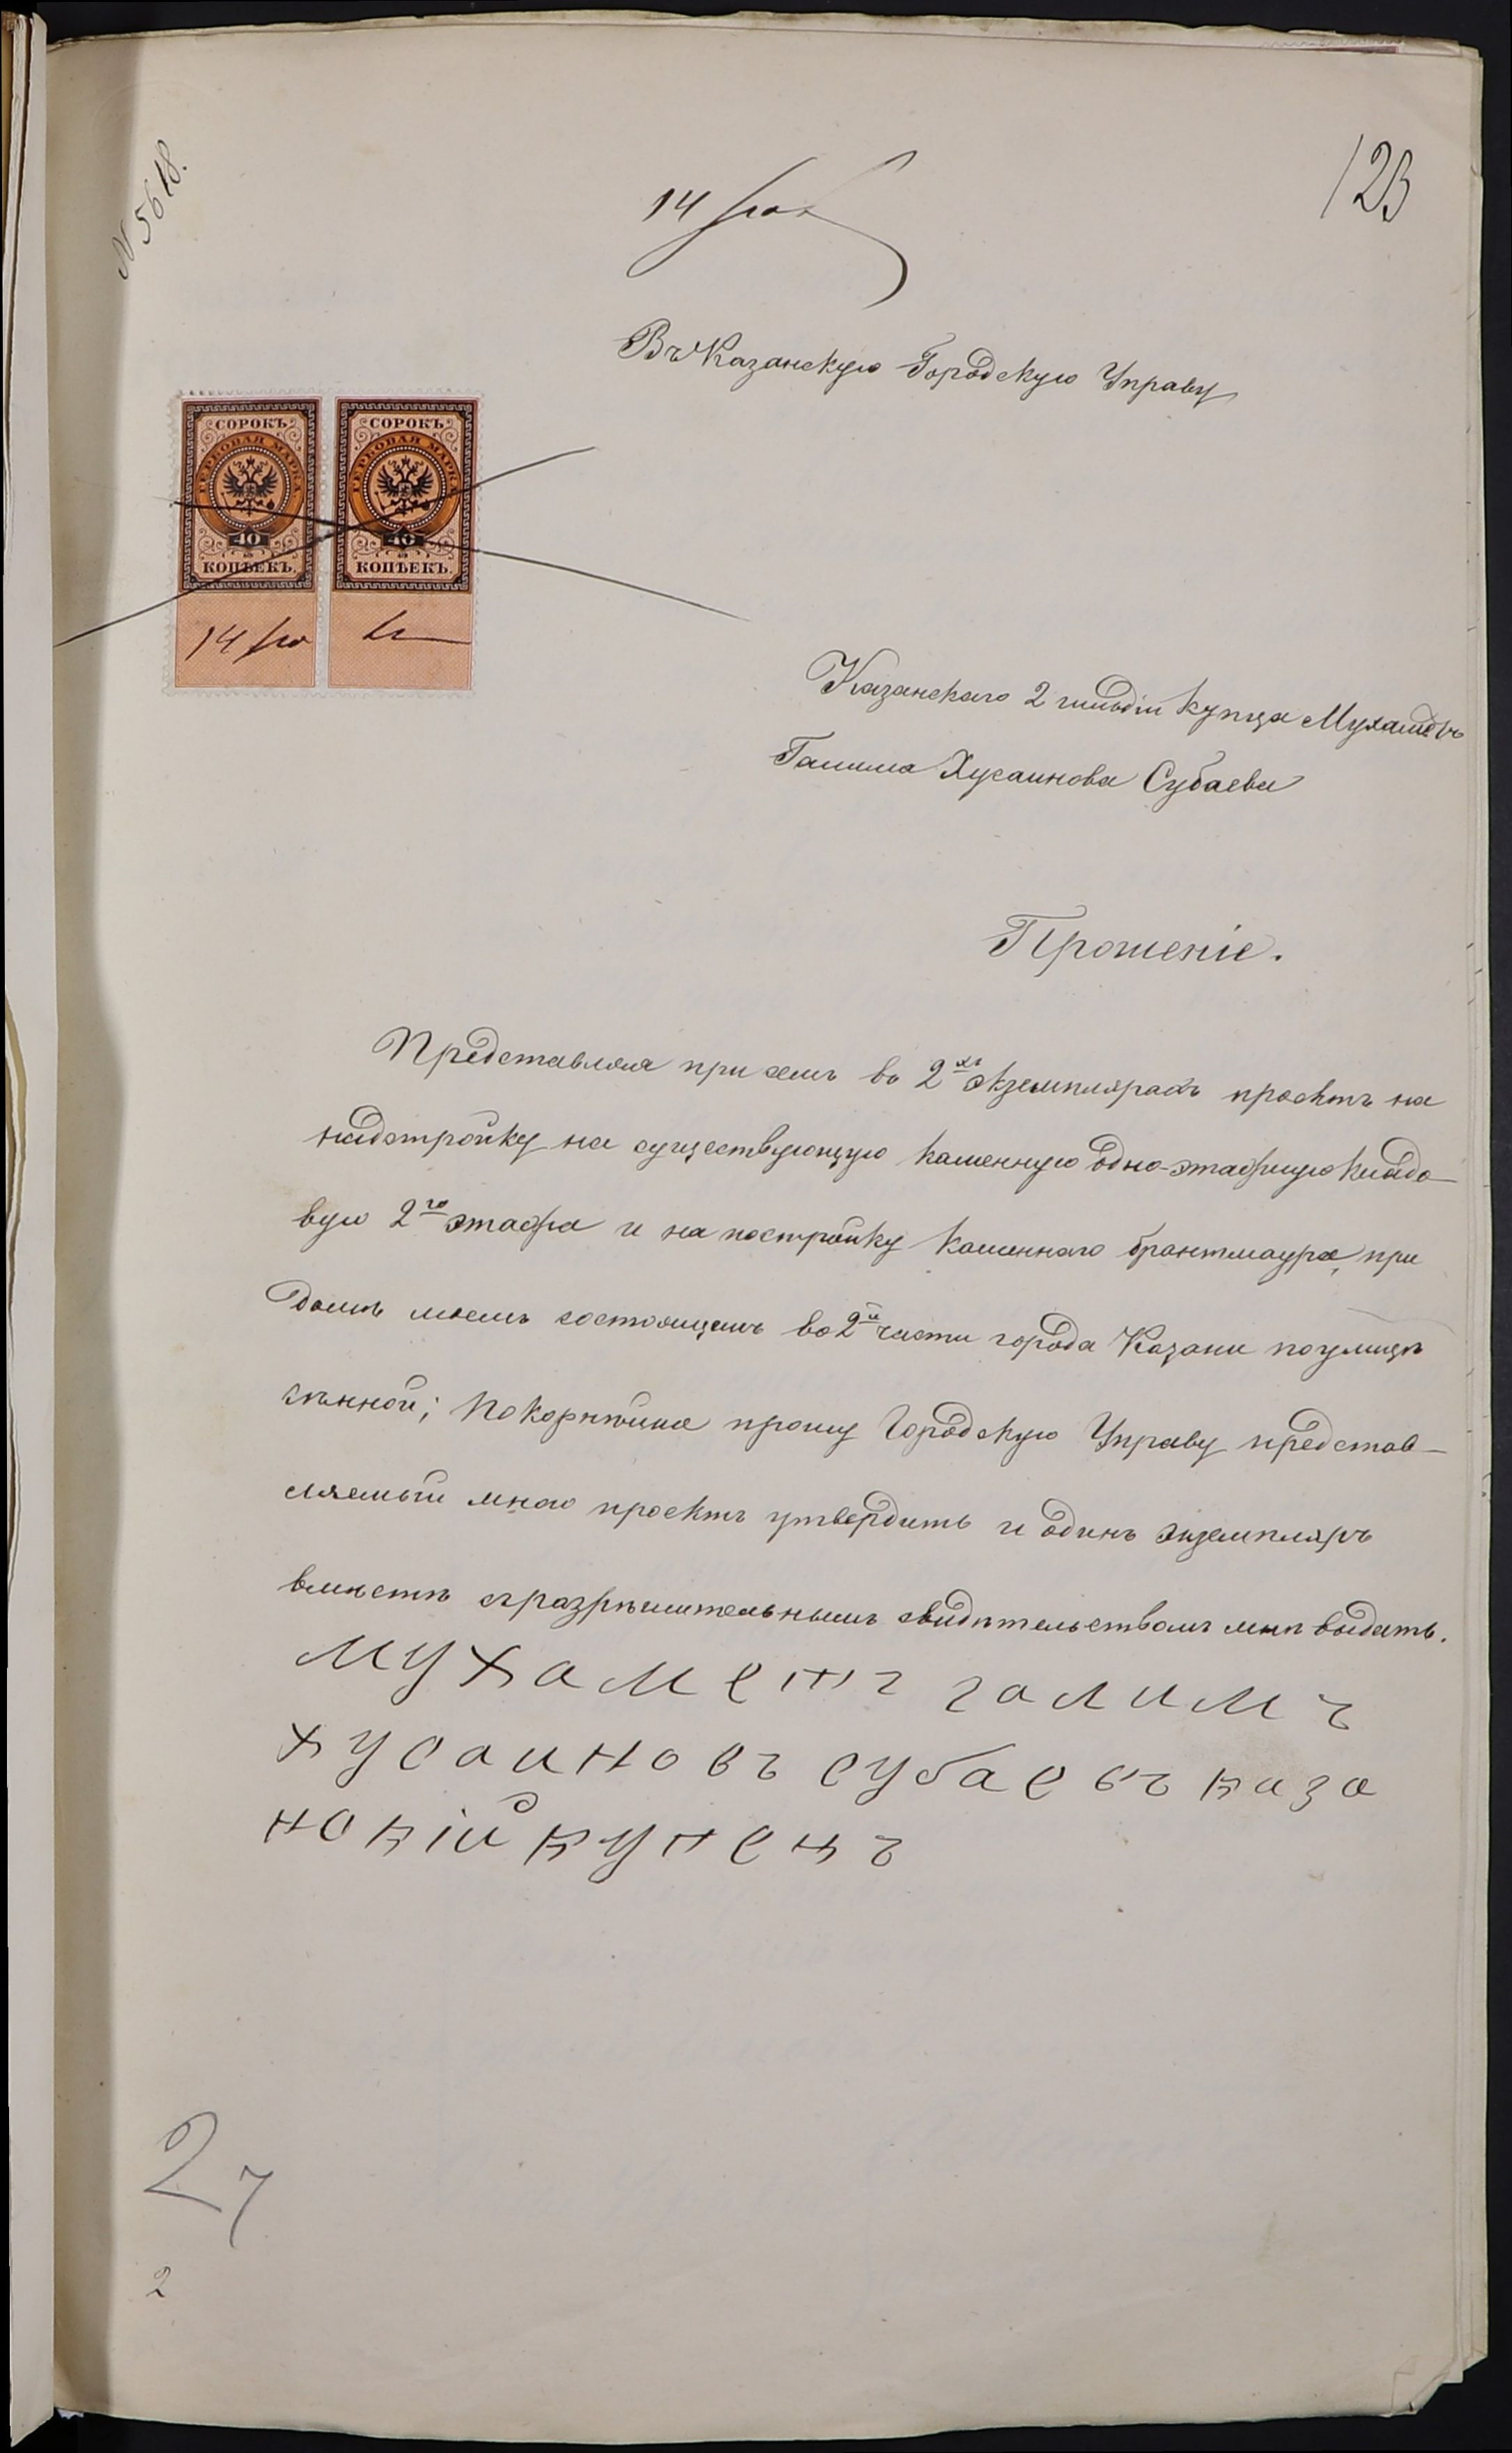 № 5618.
123
14 июл
Въ Казанскую Городскую Управу
СОРОКЪ СОРОКЪ
ГЕРБОВАЯ МАРКА ГЕРБОВАЯ МАРКА
40 40
КОПѢЕКЪ КОПѢЕКЪ
14 июл
Казанскаго 2 гильдіи купца Мухаметъ
Галима Хусаинова Субаева
Прошеніе.
Представляя при семъ въ 2хъ экземплярахъ проектъ на
надстройку на существующую каменную одно-этажную кладо-
вую 2го этажа и на постройку каменнаго брантмаура, при
домѣ моемъ состоящемъ во 2й части города Казани по улицѣ
Сѣнной; покорнѣйше прошу Городскую Управу представ-
ляемый мною проектъ утвердить и одинъ экземпляръ
вмѣстѣ съ разрѣшительнымъ свидѣтельствомъ мнѣ выдать.
мухаметъ галимъ
хусаиновъ субаевъ каза
нскій купецъ
2 ч
2